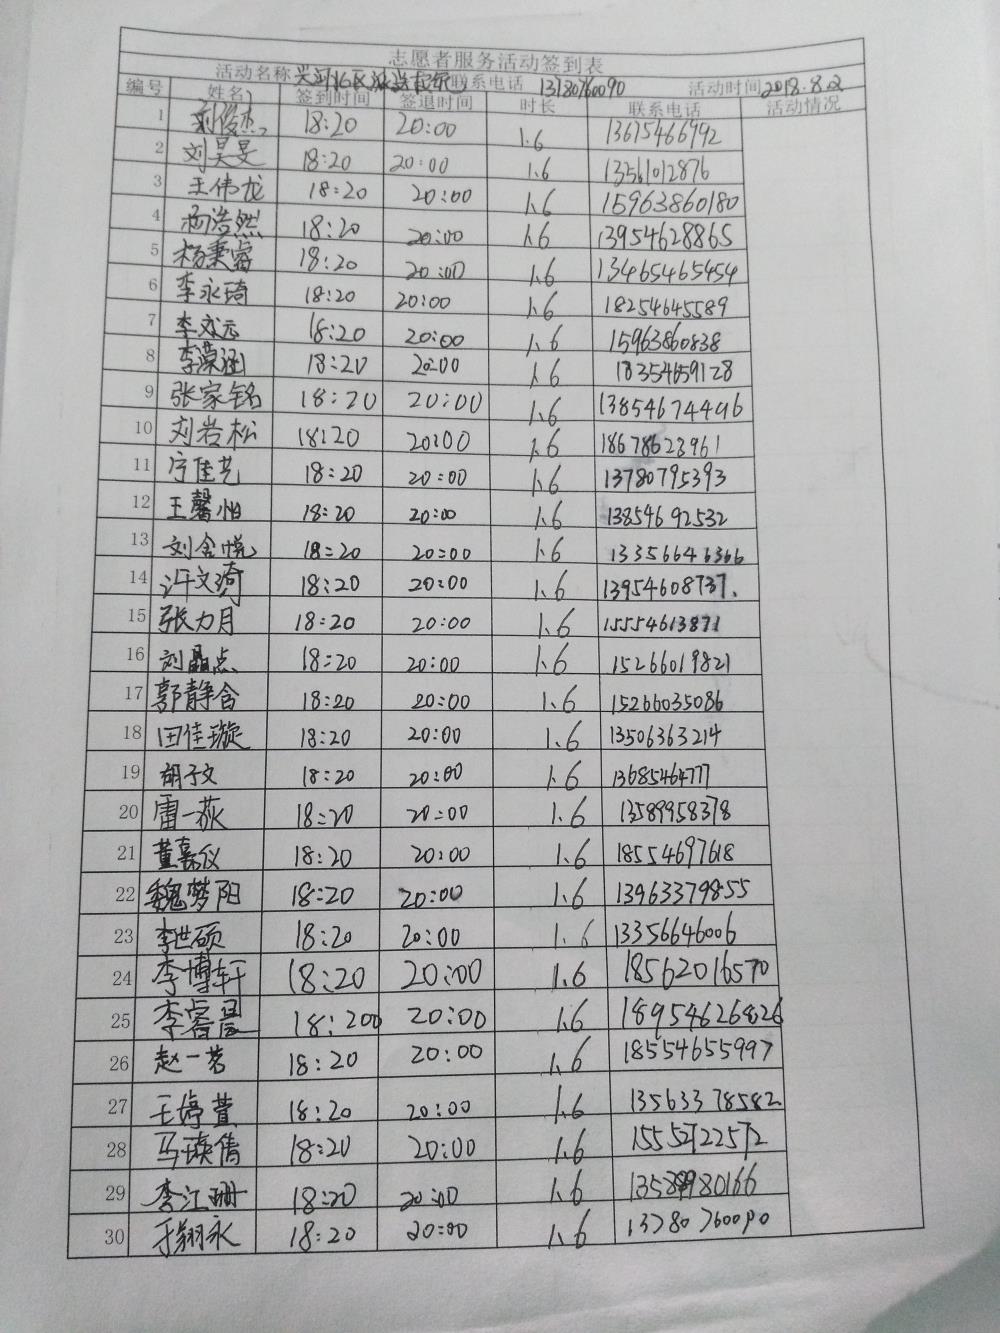 志愿者服务活动签到表
活动名称 联系电话 13780760090 活动时间 2018.8.2
编号 姓名 签到时间 签退时间 时长 联系电话 活动情况
1 刘俊杰 18:20 20:00 1.6 13615466992
2 刘昊旻 18:20 20:00 1.6 13561012876
3 王伟龙 18:20 20:00 1.6 15963860180
4 杨浩然 18:20 20:00 1.6 13954628865
5 杨秉睿 18:20 20:00 1.6 13465465454
6 李永琦 18:20 20:00 1.6 18254645589
7 李文云 18:20 20:00 1.6 15963860838
8 李濛涵 18:20 20:00 1.6 18354659128
9 张家铭 18:20 20:00 1.6 13854674496
10 刘岩松 18:20 20:00 1.6 18678623961
11 宁佳艺 18:20 20:00 1.6 13780795393
12 王馨怡 18:20 20:00 1.6 13854692532
13 刘含悦 18:20 20:00 1.6 13356646366
14 许文琦 18:20 20:00 1.6 13954608737.
15 张力月 18:20 20:00 1.6 15554613871
16 刘晶点 18:20 20:00 1.6 15266019821
17 郭静含 18:20 20:00 1.6 15266035086
18 田佳璇 18:20 20:00 1.6 13506363214
19 胡子文 18:20 20:00 1.6 13685464777
20 雷一荻 18:20 20:00 1.6 13589958378
21 董嘉仪 18:20 20:00 1.6 18554697618
22 魏梦阳 18:20 20:00 1.6 13963379855
23 李世硕 18:20 20:00 1.6 13356646006
24 李博轩 18:20 20:00 1.6 18562016570
25 李睿晨 18:200 20:00 1.6 18954626826
26 赵一茗 18:20 20:00 1.6 18554655997
27 王婷萱 18:20 20:00 1.6 13563378582
28 马瑛倩 18:20 20:00 1.6 15552722572
29 李江珊 18:20 20:00 1.6 13589980166
30 于翔永 18:20 20:00 1.6 13780760090